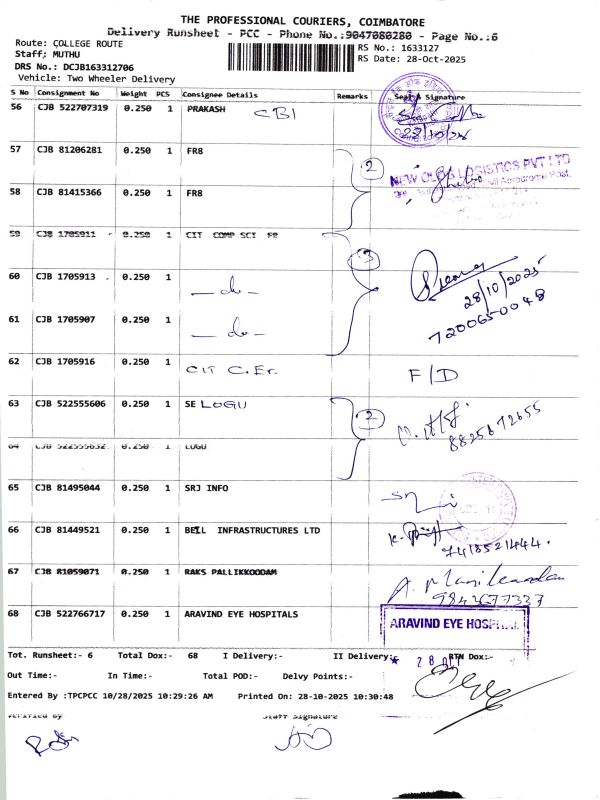 THE PROFESSIONAL COURIERS, COIMBATORE
Delivery Runsheet - PCC - Phone No.:9047080280 - Page No.:6
Route: COLLEGE ROUTE
RS No.: 1633127
Staff: MUTHU
RS Date: 28-Oct-2025
DRS No.: DCJB163312706
Vehicle: Two Wheeler Delivery
S No Consignment No Weight PCS Consignee Details Remarks Seal & Signature
56 CJB 522707319 0.250 1 PRAKASH CBI
28/10/25
57 CJB 81206281 0.250 1 FR8
2
NEW GLOB LOGISTICS PVT LTD
58 CJB 81415366 0.250 1 FR8
59 CJB 1705911 0.250 1 CIT COMP SCI F8
3
60 CJB 1705913 0.250 1 — do —
28/10/2025
61 CJB 1705907 0.250 1 — do —
7200650048
62 CJB 1705916 0.250 1 CIT C.Er. F/D
63 CJB 522555606 0.250 1 SE LOGU
2
8825672655
64 CJB 522555632 0.250 1 LOGU
65 CJB 81495044 0.250 1 SRJ INFO
66 CJB 81449521 0.250 1 BELL INFRASTRUCTURES LTD
7418521444.
67 CJB 81059071 0.250 1 RAKS PALLIKKOODAM
A. Manikandan
68 CJB 522766717 0.250 1 ARAVIND EYE HOSPITALS
ARAVIND EYE HOSPITAL
Tot. Runsheet:- 6 Total Dox:- 68 I Delivery:- II Delivery:- RTN Dox:-
28 OCT
Out Time:- In Time:- Total POD:- Delvy Points:-
Entered By :TPCPCC 10/28/2025 10:29:26 AM Printed On: 28-10-2025 10:30:48
Verified By Staff Signature